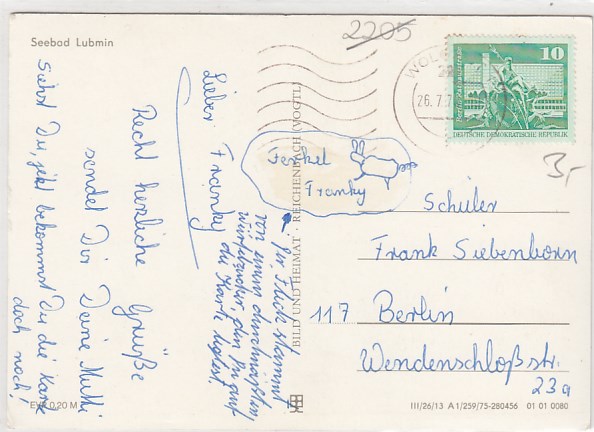 Seebad Lubmin
2205
WOL
26.7.7
10
DEUTSCHE DEMOKRATISCHE REPUBLIK
3,-
Lieber Franky
Recht herzliche Grüße
sendet Dir Deine Mutti
Siehst Du, jetzt bekommst Du die Karte
doch noch!
Ferkel
Franky
Der Fleck stammt
von einem durchnäßten
Würfelzucker, den Du auf
die Karte legtest.
BILD UND HEIMAT · REICHENBACH (VOGTL)
Schüler
Frank Siebenborn
117 Berlin
Wendenschloßstr.
23a
EVP 0,20 M
III/26/13 A 1/259/75-280456 01 01 0080